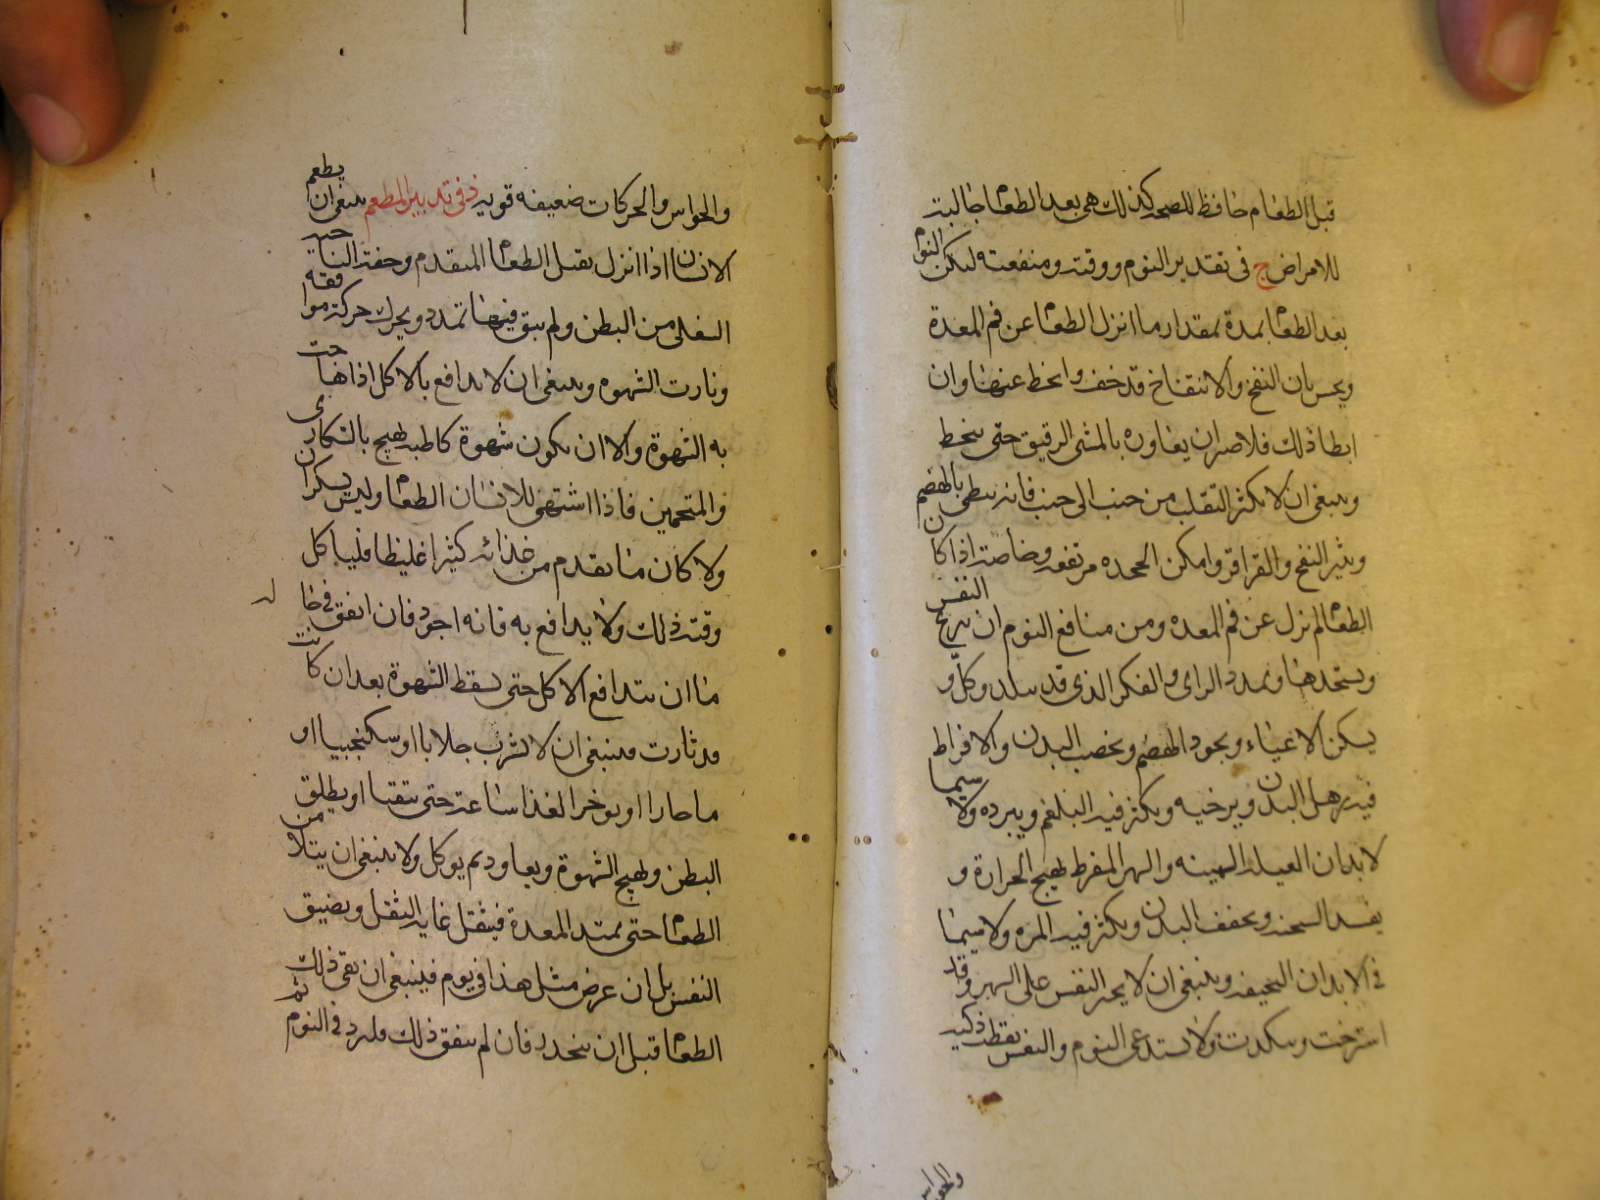 قبل الطعام حافظ للصحه كذلك هى بعد الطعام جالبة
للامراض ج فى تقدير النوم ووقته ومنفعته ليكن النوم
بعد الطعام بمدة بمقدار ما انزل الطعام عن فم المعدة
ويحس بان النفخ والانتفاخ قد خف وانحط عنها وان
ابطا ذلك فلا ضر ان يعاونه بالمشى الرقيق حتى ينحط
وينبغى ان لا يكثر التقلب من جنب الى جنب فانه يبطى بالهضم
ويثير النفخ والقراقر وخاصة اذا كان
الطعام لم ينزل عن فم المعده ومن منافع النوم ان يريح النفس
الراى والفكر الذى قد تبلد وكل و
يسكن الاعياء ويجود الهضم ويخصب البدن والافراط
فيه يرهل البدن ويرخيه ويكثر فيه البلغم ويبرده ولا سيما
لابدان العبله السمينه والسهر المفرط يهيج الحرارة و
يفسد السحنه ويجفف البدن ويكثر فيه المره ولا سيما
فى الابدان النحيفه وينبغى ان لا يجبر النفس على السهر وقد
استرخت وسكنت ولا يستدعى النوم والنفس يقظة ذكيه
والحواس
والحواس والحركات ضعيفه قويه د فى تدبير المطعم ينبغى ان يطعم
الانسان اذا انزل ثقل الطعام المتقدم وخفت الناحيه
السفلى من البطن ولم يبق فيها تمدد ويحرك حركة موافقه
وثارت الشهوه وينبغى ان لا يدافع بالاكل اذا هاجت
به الشهوة والا ان يكون شهوة كاذبه يهيج بالسكارى
والمتخمين فاذا اشتهى للانسان الطعام وليس بسكران
ولا كان ما تقدم من غذائه كثيرا غليظا فلياكل
وقته ذلك ولا يدافع به فانه اجود فان اتفق فى حا
ما ان يتدافع الاكل حتى يسقط الشهوة بعد ان كانت
قد ثارت فينبغى ان لا يشرب جلابا او سكنجبيا او
ما حارا او يوخر الغذا ساعة حتى يتقيا او يطلق
البطن ويهيج الشهوة ويعاود ثم يوكل ولا ينبغى ان يمتلا من
الطعام حتى يمتد المعدة فيثقل غايه الثقل ويضيق
النفس بل ان عرض مثل هذا فى يوم فينبغى ان يقى ذلك
الطعام قبل ان ينحدر فان لم يتفق ذلك فليزد فى النوم ثم